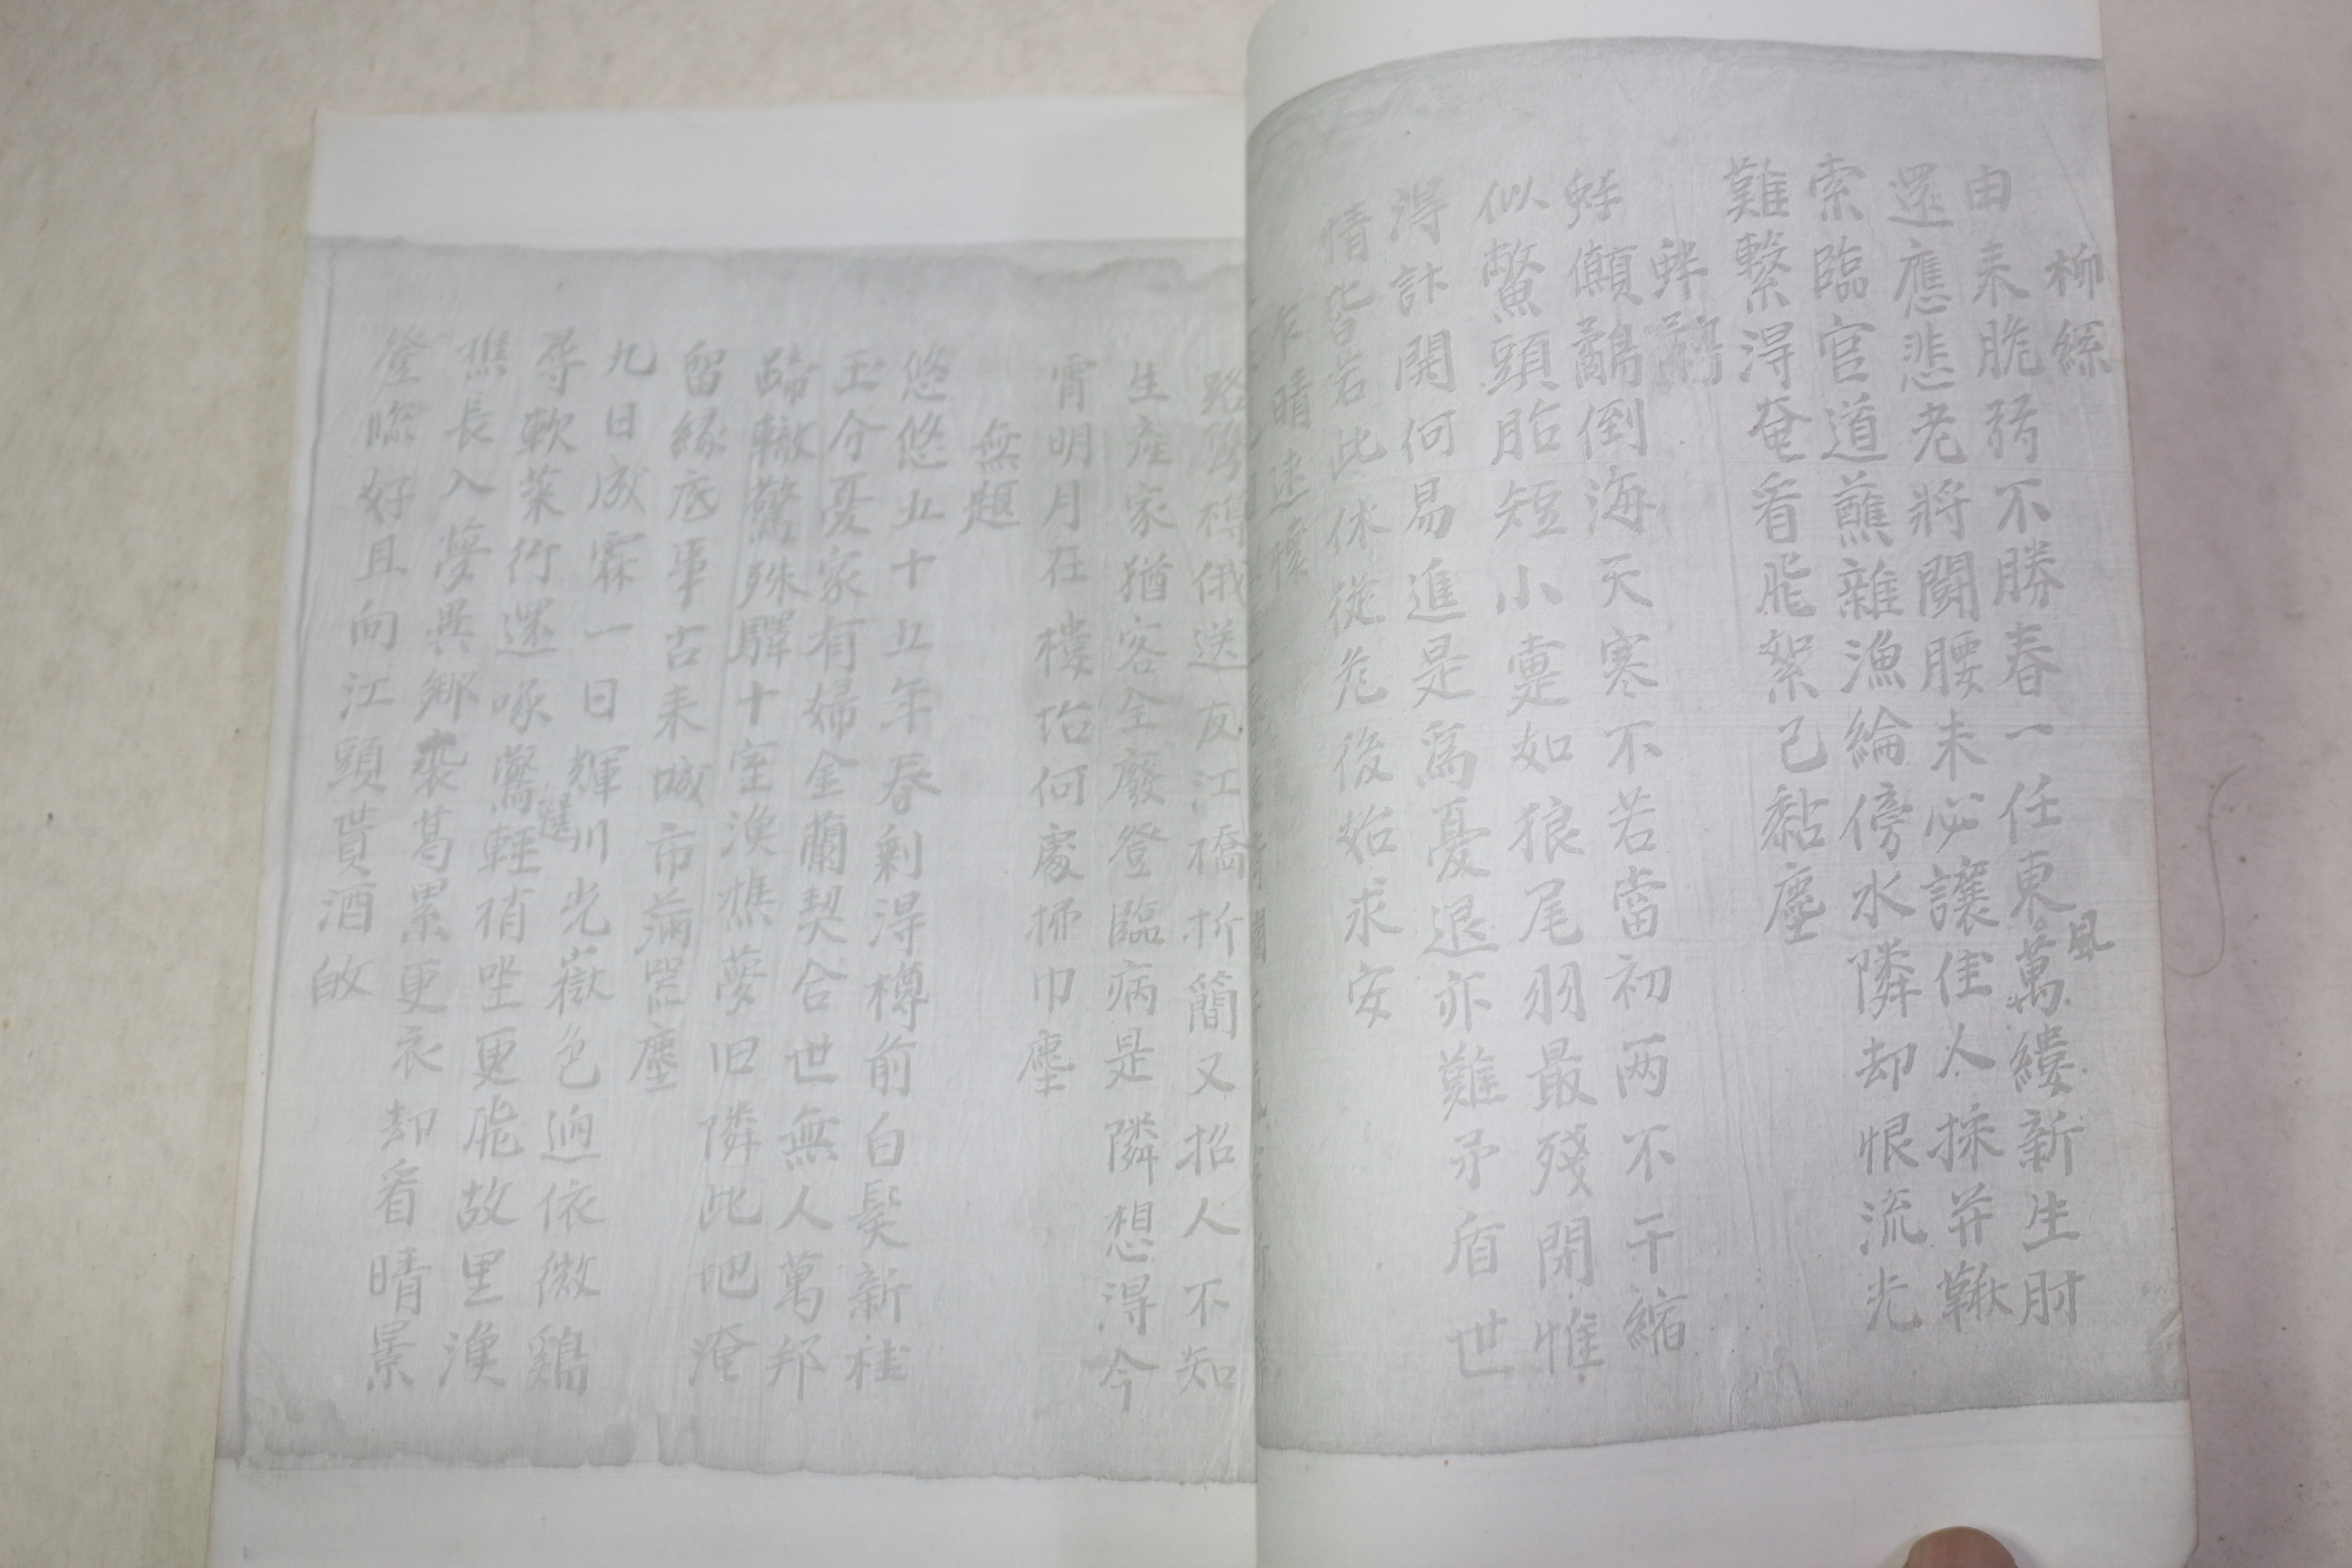 柳絲
由來脆弱不勝春一任東風萬縷新生肘
還應悲老將鬪腰未必讓佳人採茾鞦
索臨官道蘸雜漁綸傍水隣却恨流光
難繫得奄看飛絮已黏塵
蚌鷸
蚌顚鷸倒海天寒不若當初两不干縮
似鱉頭胎短小寔如狼尾羽最殘閑惟
淂訃開何易進是爲憂退亦難矛盾世
情皆若此休從危後始求安
乍晴述懷
路 樽俄送友江橋折簡又招人不知
生産家猶客全廢登臨病是隣想淂今
宵明月在樓坮何處拂巾塵
無題
悠悠五十五年春剩淂樽前白髮新桂
玉分憂家有婦金蘭契合世無人萬邦
蹄轍驚殊驛十室漁樵夢旧隣此地淹
留緣底事古來城市滿嚣塵
九日成霖一日輝川光嶽色逈依微鷄
尋軟葉行還啄鶯輕梢坐更飛故里漁
樵長入夢異鄉裘葛累更衣却看晴景
登臨好且向江頭貰酒